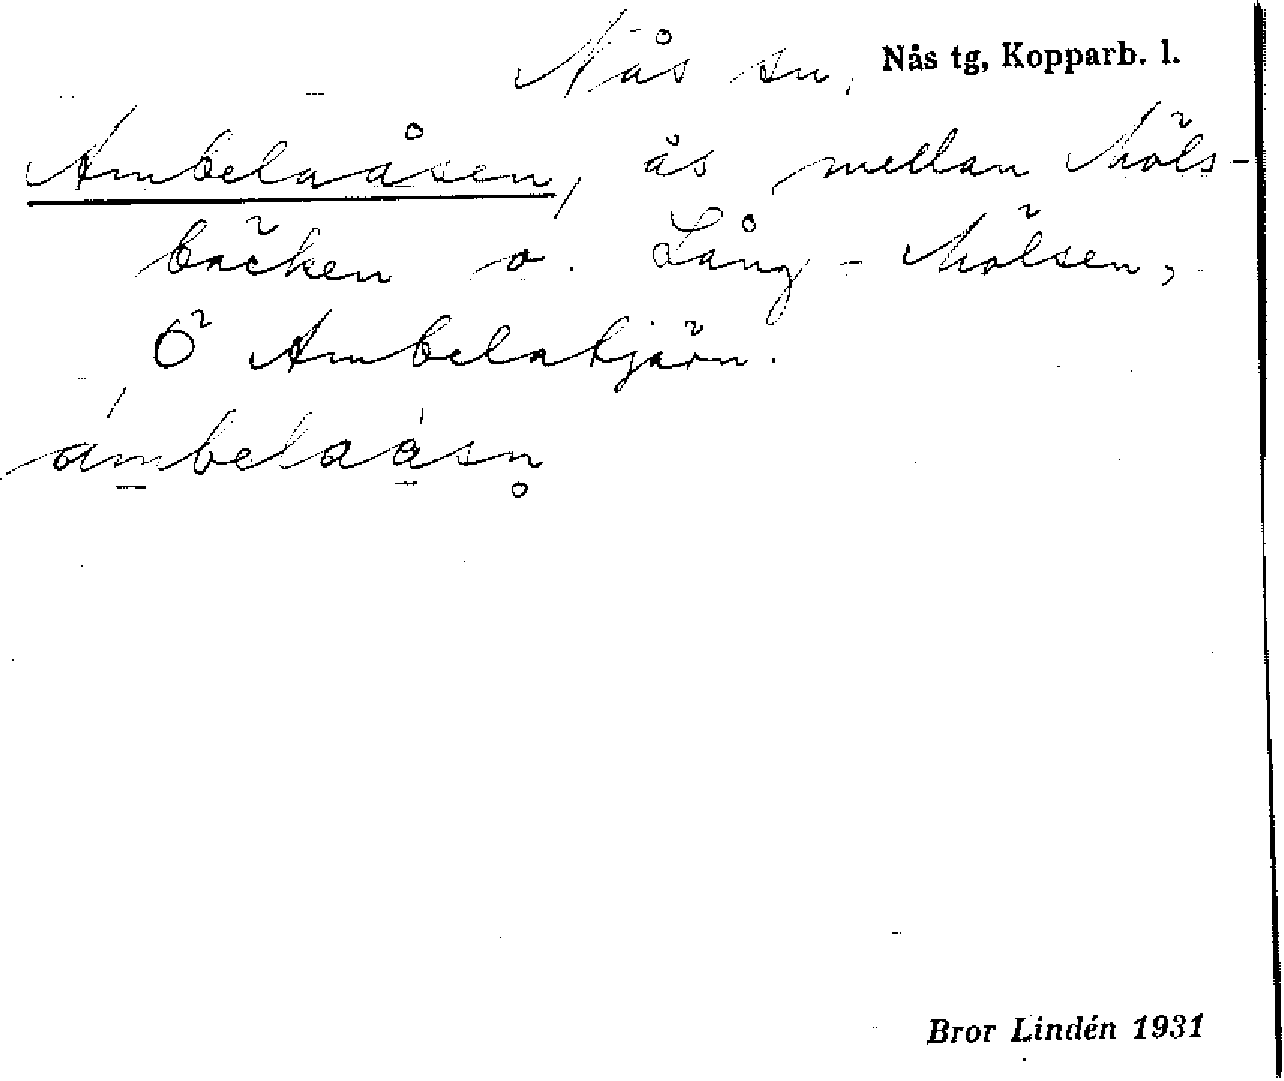 Nås sn, Nås tg, Kopparb. l.
Ambelaåsen, ås mellan Möls-
bäcken o. Lång-Mölsen,
Ö Ambelatjärn.
ámbelaåsn̥
Bror Lindén 1931